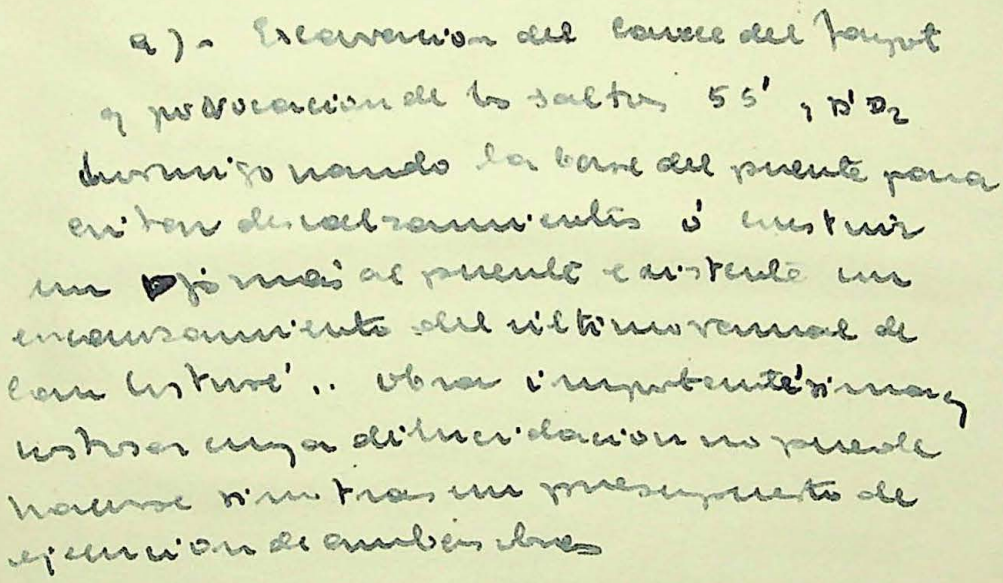 a).- Escavacion del cauce del
y provocacion de los saltos 55', D'D2
hormigonando la base del puente para
evitar descalzamientos ó construir
un ojo más al puente existente un
encauzamiento del ultimo ramal de
Can .. obra importantésima y
costosa cuya dilucidacion no puede
hacerse sino tras un presupuesto de
ejecucion de ambas obras